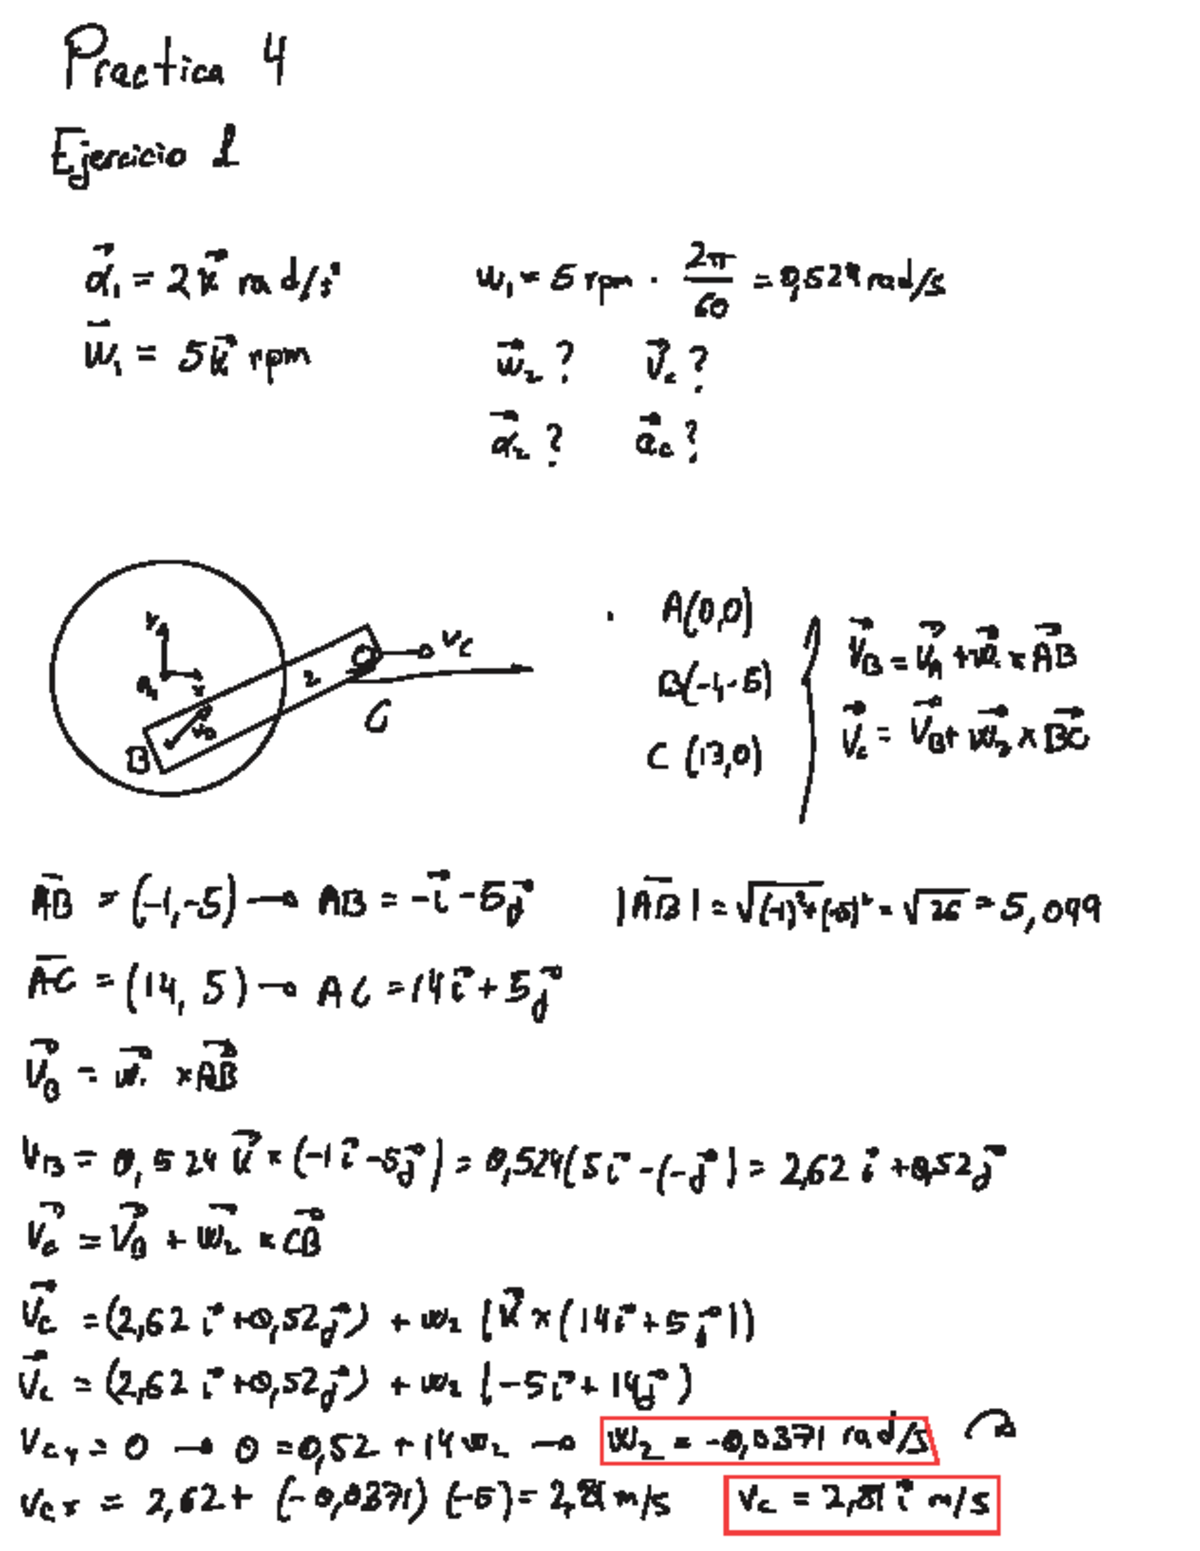 Practica 4
Ejercicio 1
α⃗₁ = 2 k⃗ rad/s²
w₁ = 5 rpm · 2π/60 = 0,524 rad/s
w⃗₁ = 5 k⃗ rpm
w⃗₂ ? v⃗c ?
α⃗₂ ? a⃗c ?
Vc
2
B
C
A(0,0)
B(-1,-5)
C (13,0)
V⃗B = V⃗A + w⃗₁ × AB⃗
V⃗c = V⃗B + w⃗₂ × BC⃗
AB = (-1,-5) → AB = -i⃗ - 5j⃗ |AB| = √(-1)²+(-5)² = √26 = 5,099
AC = (14, 5) → AC = 14i⃗ + 5j⃗
V⃗B = w⃗₁ × AB⃗
VB = 0,524 k⃗ × (-1i⃗ - 5j⃗) = 0,524(5i⃗ - (-j⃗) = 2,62 i⃗ + 0,52j⃗
V⃗c = V⃗B + w⃗₂ × CB⃗
V⃗c = (2,62 i⃗ + 0,52j⃗) + w₂ (k⃗ × (14i⃗ + 5j⃗))
V⃗c = (2,62 i⃗ + 0,52j⃗) + w₂ (-5i⃗ + 14j⃗)
Vcy = 0 → 0 = 0,52 + 14 w₂ → w₂ = -0,0371 rad/s
Vcx = 2,62 + (-0,0371) (-5) = 2,81 m/s Vc = 2,81 i⃗ m/s